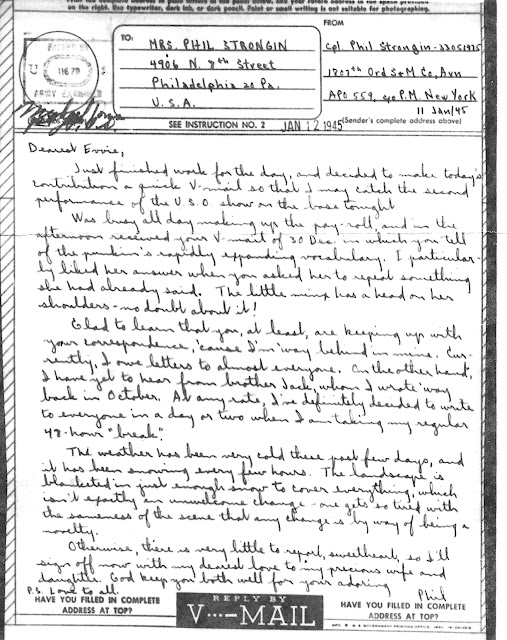 on the right. Use typewriter, dark ink, or dark pencil. Paint or small writing is not suitable for photographing.
TO:
MRS. PHIL STRONGIN
4906 N. 8th Street
Philadelphia 20 Pa.
U.S.A.
FROM
Cpl. Phil Strongin-33051925
1807th Ord S+M Co., Avn
APO 559, c/o P.M. New York
11 Jan/45
(Sender's complete address above)
SEE INSTRUCTION NO. 2
JAN 12 1945
Dearest Evvie,
Just finished work for the day, and decided to make today's
contribution a quick V-mail so that I may catch the second
performance of the U.S.O show on the base tonight
Was busy all day making up the pay-roll, and in the
afternoon received your V-mail of 30 Dec. in which you tell
of the punkin's rapidly expanding vocabulary. I particular-
ly liked her answer when you asked her to repeat something
she had already said. The little minx has a head on her
shoulders - no doubt about it!
Glad to learn that you, at least, are keeping up with
your correspondence, 'cause I'm 'way behind in mine. Cur-
rently, I owe letters to almost everyone. On the other hand,
I have yet to hear from brother Jack, whom I wrote 'way
back in October. At any rate, I've definitely decided to write
to everyone in a day or two when I am taking my regular
48-hour "break".
The weather has been very cold these past few days, and
it has been snowing every few hours. The landscape is
blanketed in just enough snow to cover everything, which
isn't exactly an unwelcome change - one gets so tired with
the sameness of the scene that any change is by way of being a
novelty.
Otherwise, there is very little to report, sweetheart, so I'll
sign off now with my dearest love to my precious wife and
daughter. God keep you both well for your adoring
Phil
P.S. Love to all
HAVE YOU FILLED IN COMPLETE
ADDRESS AT TOP?
REPLY BY
V···-MAIL
HAVE YOU FILLED IN COMPLETE
ADDRESS AT TOP?